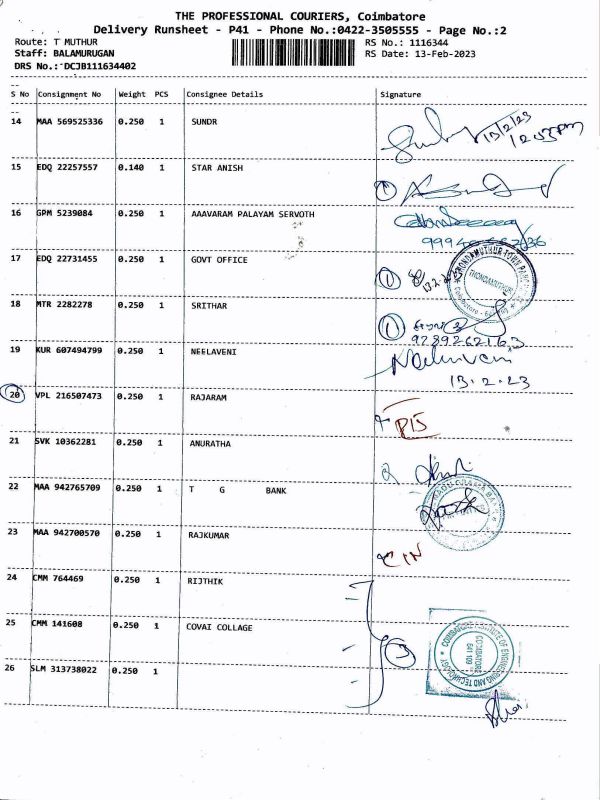 THE PROFESSIONAL COURIERS, Coimbatore
Delivery Runsheet - P41 - Phone No.:0422-3505555 - Page No.:2
Route: T MUTHUR RS No.: 1116344
Staff: BALAMURUGAN RS Date: 13-Feb-2023
DRS No.: DCJB111634402
S No Consignment No Weight PCS Consignee Details Signature
14 MAA 569525336 0.250 1 SUNDR
13/2/23
15 EDQ 22257557 0.140 1 STAR ANISH
1
16 GPM 5239084 0.250 1 AAAVARAM PALAYAM SERVOTH
17 EDQ 22731455 0.250 1 GOVT OFFICE
1
THONDAMUTHUR
18 MTR 2282278 0.250 1 SRITHAR
1
9289262163
19 KUR 607494799 0.250 1 NEELAVENI
13.2.23
20 VPL 216507473 0.250 1 RAJARAM
21 SVK 10362281 0.250 1 ANURATHA
22 MAA 942765709 0.250 1 T G BANK
23 MAA 942700570 0.250 1 RAJKUMAR
CIN
24 CMM 764469 0.250 1 RIJTHIK
25 CMM 141608 0.250 1 COVAI COLLAGE
3
COIMBATORE INSTITUTE OF ENGINEERING AND TECHNOLOGY
COIMBATORE
641 109
26 SLM 313738022 0.250 1